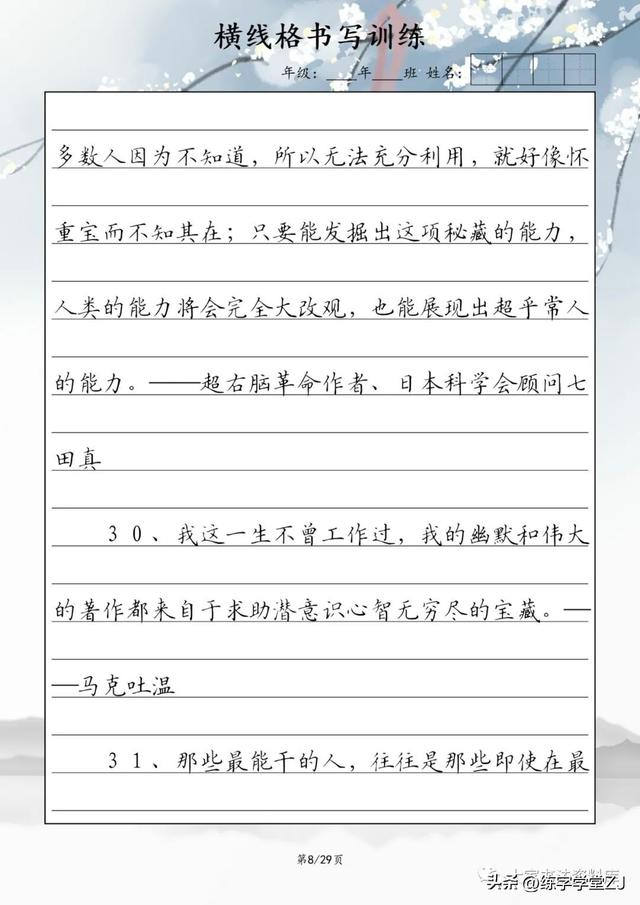 横线格书写训练
年级：____年____班 姓名：
多数人因为不知道，所以无法充分利用，就好像怀
重宝而不知其在；只要能发掘出这项秘藏的能力，
人类的能力将会完全大改观，也能展现出超乎常人
的能力。——超右脑革命作者、日本科学会顾问七
田真
30、我这一生不曾工作过，我的幽默和伟大
的著作都来自于求助潜意识心智无穷尽的宝藏。—
—马克吐温
31、那些最能干的人，往往是那些即使在最
第8/29页
头条@练字学堂ZJ